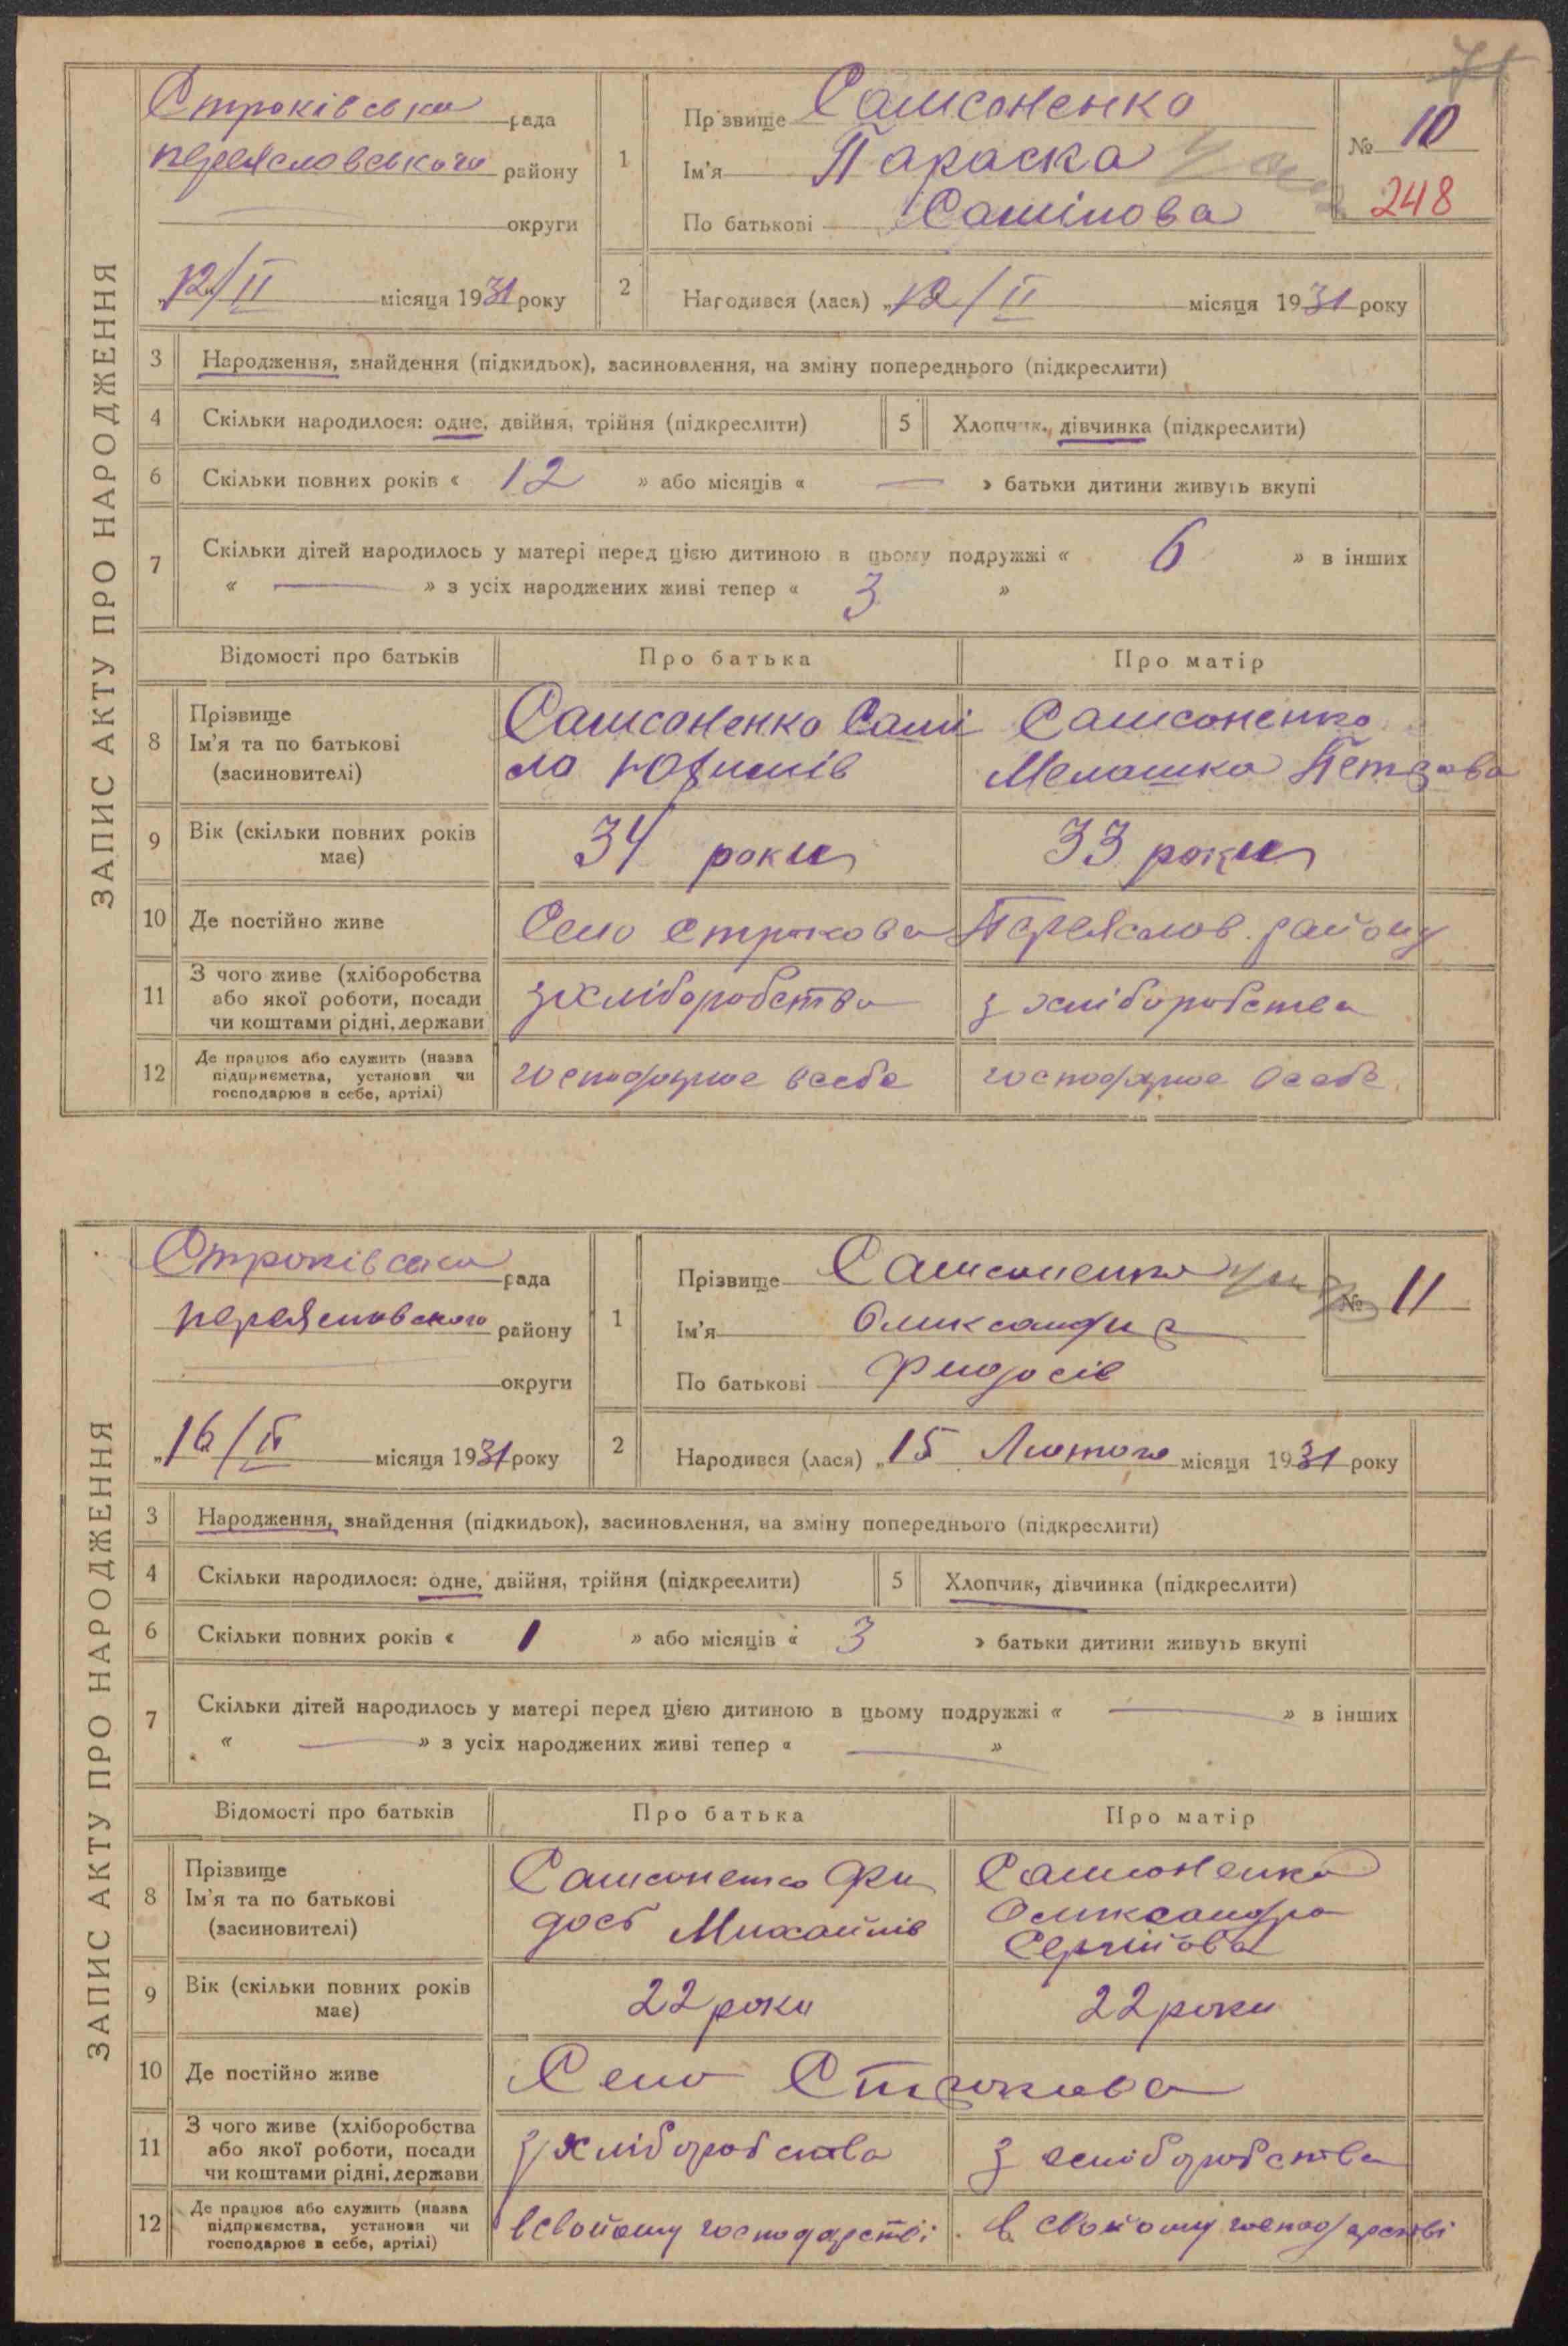 71
ЗАПИС АКТУ ПРО НАРОДЖЕННЯ
Строківська рада
переясловського району
округи
„12/II місяця 1931 року
1
Прізвище Самсоненко
Ім'я Параска
По батькові Самілова
№ 10
248
2 Народився (лася) „12/II місяця 1931 року
3 Народження, знайдення (підкидьок), засиновлення, на зміну попереднього (підкреслити)
4 Скільки народилося: одне, двійня, трійня (підкреслити) 5 Хлопчик, дівчинка (підкреслити)
6 Скільки повних років « 12 » або місяців « — » батьки дитини живуть вкупі
7 Скільки дітей народилось у матері перед цією дитиною в цьому подружжі « 6 » в інших
« — » з усіх народжених живі тепер « 3 »
Відомості про батьків Про батька Про матір
8 Прізвище Ім'я та по батькові (засиновителі)
Самсоненко Самі
ло Юхимів
Самсоненко
Мелашка Петрова
9 Вік (скільки повних років має) 34 роки 33 роки
10 Де постійно живе Село Строкова Переяслов. району
11 З чого живе (хліборобства або якої роботи, посади чи коштами рідні, держави з хліборобства з хліборобства
12 Де працює або служить (назва підприємства, установи чи господарює в себе, артілі) господарює всебе господарює всебе
ЗАПИС АКТУ ПРО НАРОДЖЕННЯ
Строківська рада
переясловського району
округи
„16/II місяця 1931 року
1
Прізвище Самсоненко
Ім'я Олександр
По батькові Фидосів
№ 11
2 Народився (лася) „15 Лютого місяця 1931 року
3 Народження, знайдення (підкидьок), засиновлення, на зміну попереднього (підкреслити)
4 Скільки народилося: одне, двійня, трійня (підкреслити) 5 Хлопчик, дівчинка (підкреслити)
6 Скільки повних років « 1 » або місяців « 3 » батьки дитини живуть вкупі
7 Скільки дітей народилось у матері перед цією дитиною в цьому подружжі « — » в інших
« — » з усіх народжених живі тепер « — »
Відомості про батьків Про батька Про матір
8 Прізвище Ім'я та по батькові (засиновителі)
Самсоненко Фи
дось Михайлів
Самсоненко
Олександра
Сергійова
9 Вік (скільки повних років має) 22 роки 22 роки
10 Де постійно живе Село Строкова
11 З чого живе (хліборобства або якої роботи, посади чи коштами рідні, держави з хліборобства з хліборобства
12 Де працює або служить (назва підприємства, установи чи господарює в себе, артілі) всвойому господарстві в свойому господарстві